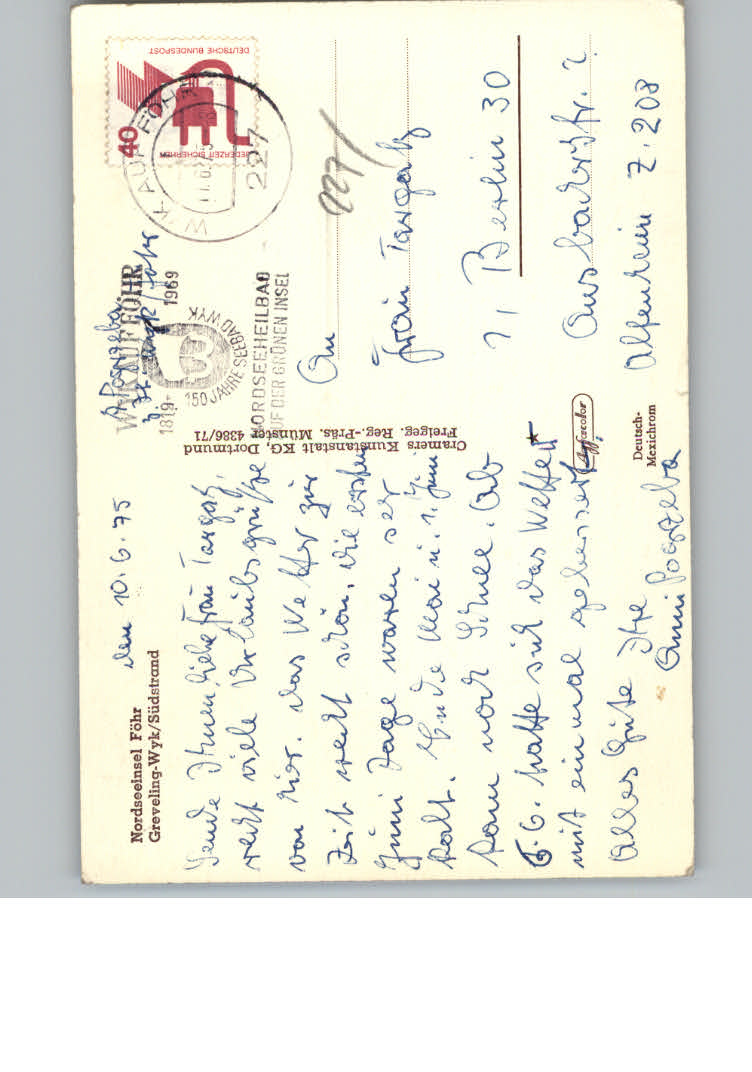 Nordseeinsel Föhr
Greveling-Wyk/Südstrand
den 10.6.75
Sende Ihnen, liebe Frau Targatz,
recht viele Urlaubsgrüße
von hier. Das Wetter zur
Zeit recht schön, die ersten
Juni Tage waren ser
kalt. Ende Mai u. 1. Juni
kam noch Schnee. Ab
6.6. hatte sich das Wetter
mit einmal gebessert.
Alles Gute Ihre
Anni
Cramers Kunstanstalt KG, Dortmund
Freigeg. Reg.-Präs. Münster 4386/71
Agfacolor
Deutsch-
Mexichrom
WYK AUF FÖHR
1819-
1969
150 JAHRE SEEBAD WYK
NORDSEEHEILBAD
AUF DER GRÜNEN INSEL
WYK AUF FÖHR
227
DEUTSCHE BUNDESPOST
JEDERZEIT SICHERHEIT
40
227/
An
Frau Targatz
1, Berlin 30
Ansbacherstr. 2
Altenheim Z. 208